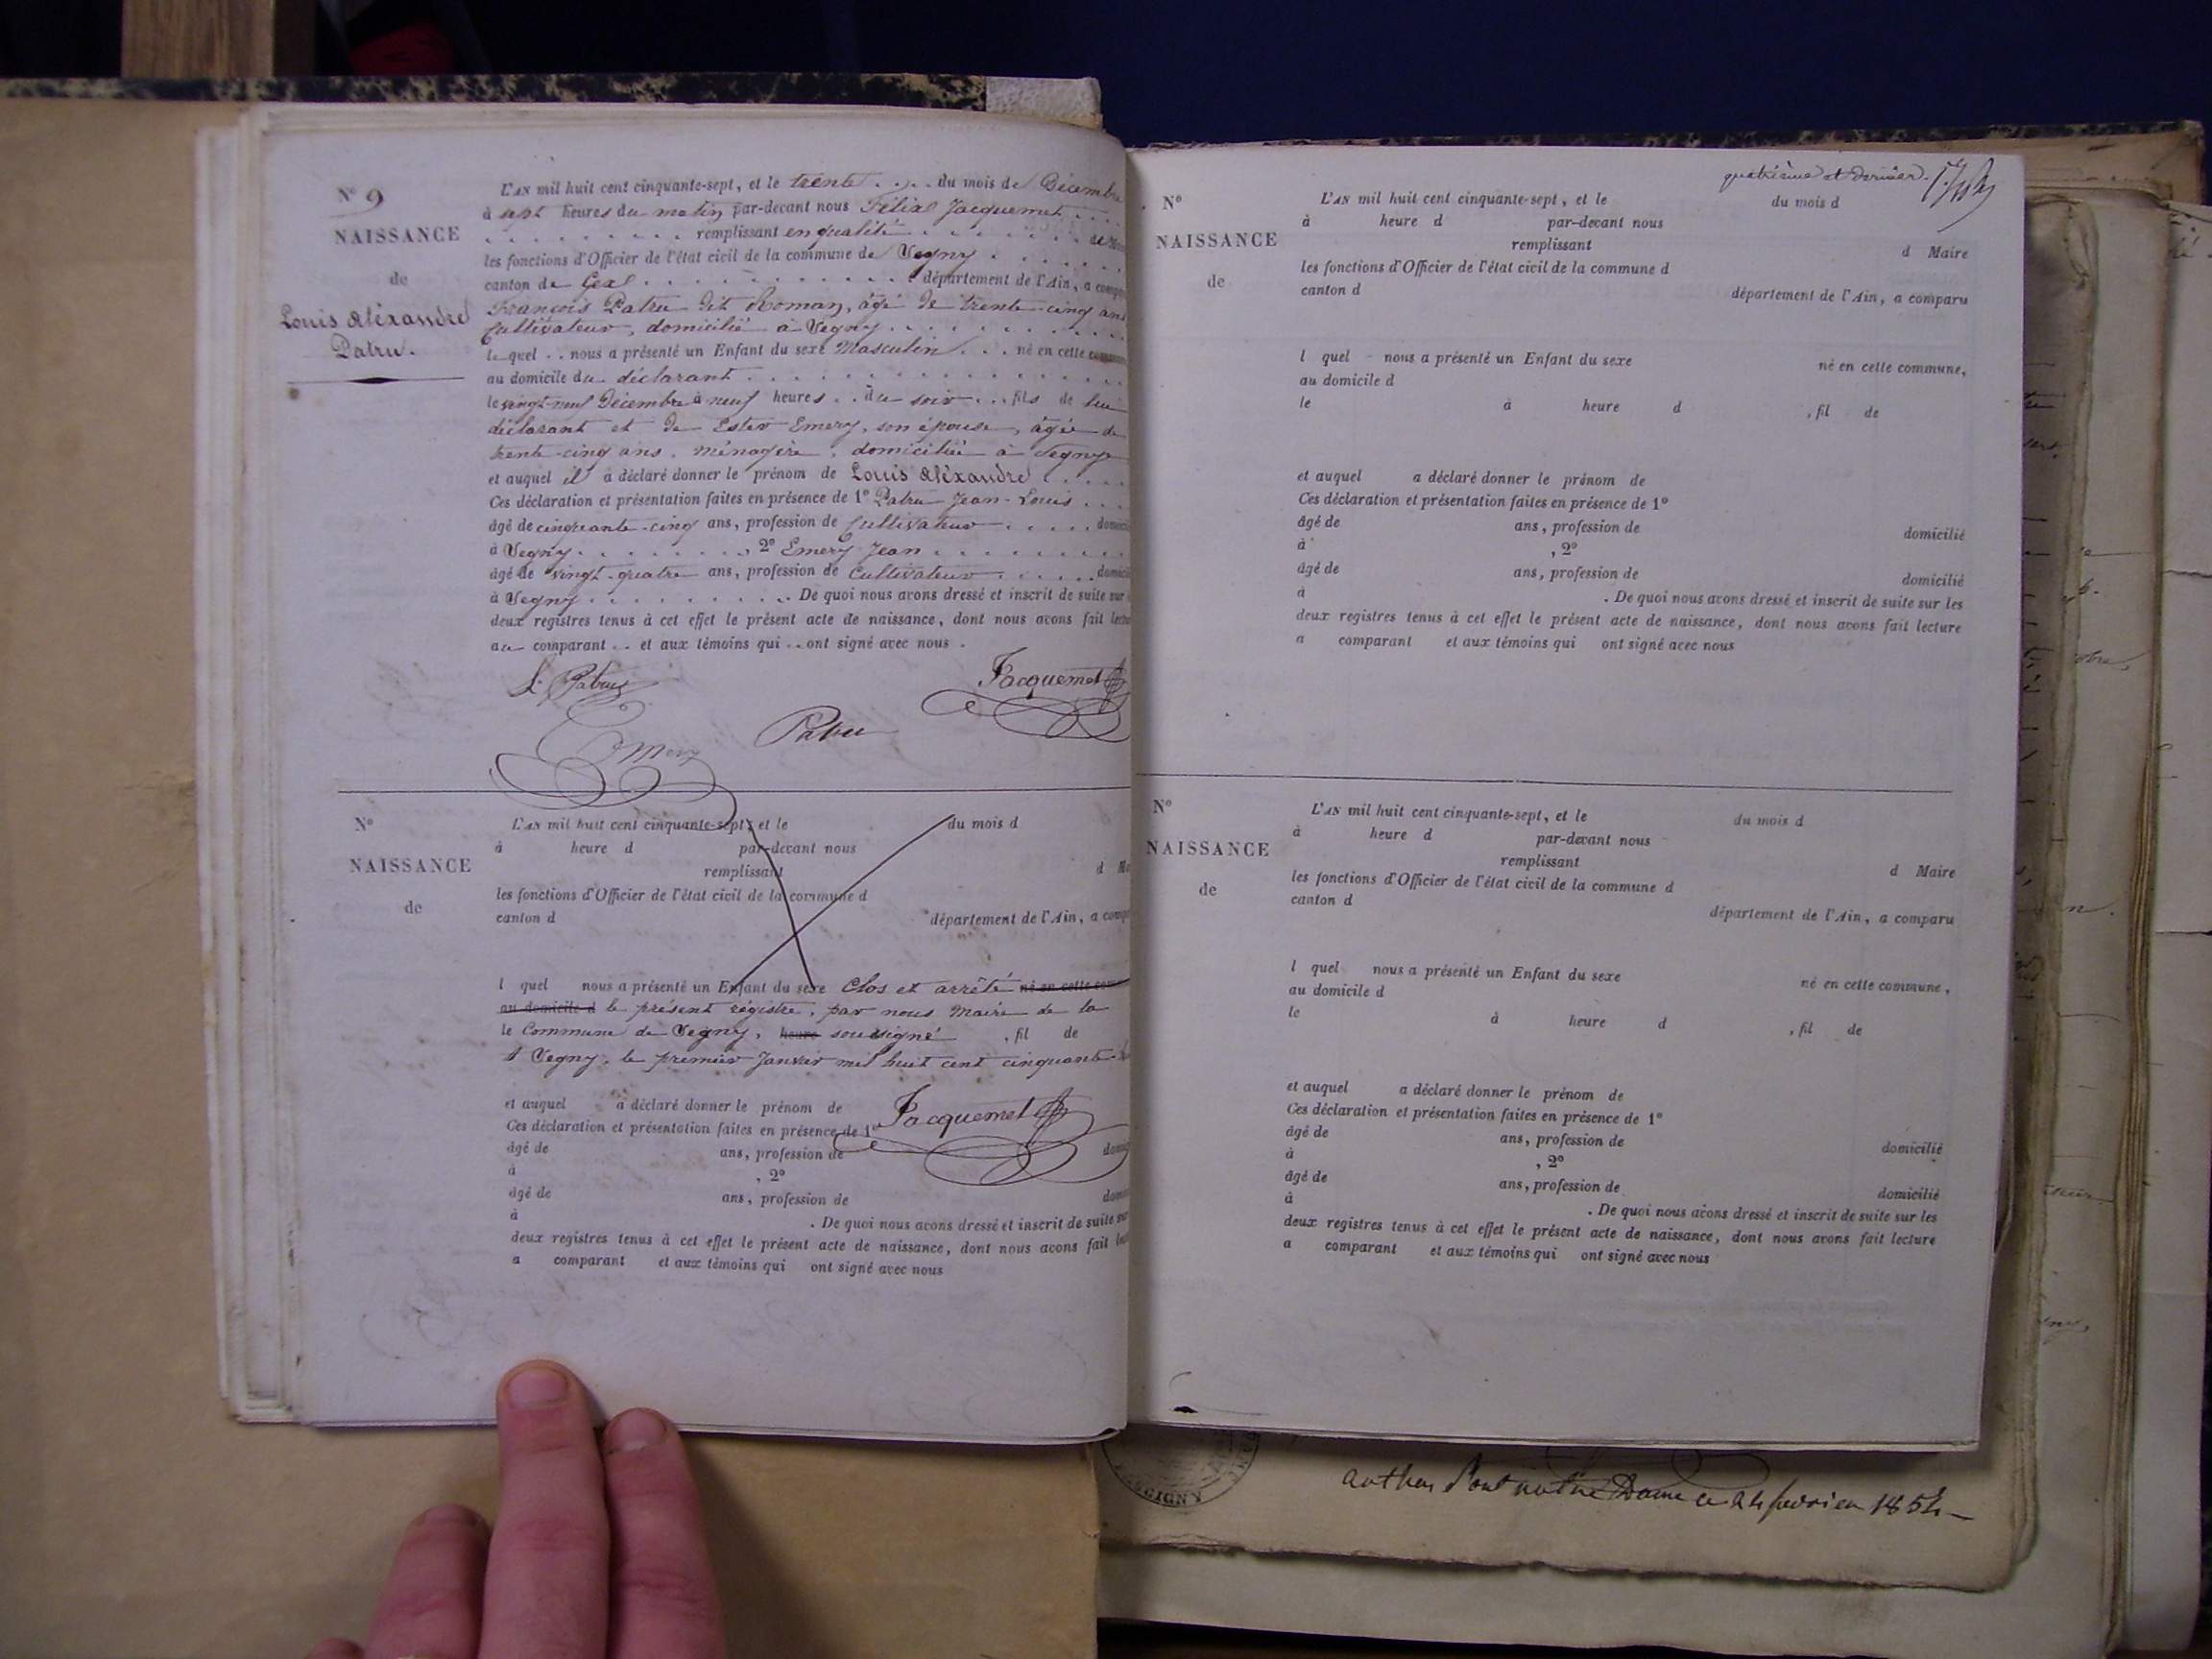 N° 9
NAISSANCE
de
Louis Aléxandre
Patru.
L'AN mil huit cent cinquante-sept, et le trente du mois de Décembre
à sept heures du matin par-devant nous Félix Jacquemet
remplissant en qualité de
les fonctions d'Officier de l'état civil de la commune de Segny
canton de Gex département de l'Ain, a comparu
François Patru dit Roman, âgé de trente-cinq ans
Cultivateur, domicilié à Segny
lequel nous a présenté un Enfant du sexe Masculin né en cette commune
au domicile du déclarant
le vingt-neuf Décembre à neuf heures du soir fils de lui
déclarant et de Ester Emery, son épouse, âgée de
trente-cinq ans, ménagère, domiciliée à Segny
et auquel il a déclaré donner le prénom de Louis Aléxandre
Ces déclaration et présentation faites en présence de 1° Patru Jean-Louis
âgé de cinquante-cinq ans, profession de Cultivateur domici
à Segny, 2° Emery Jean
âgé de vingt-quatre ans, profession de Cultivateur domici
à Segny. De quoi nous avons dressé et inscrit de suite sur
deux registres tenus à cet effet le présent acte de naissance, dont nous avons fait lectu
au comparant et aux témoins qui ont signé avec nous.
Patru Jacquemet
Emery Patru
N°
NAISSANCE
de
L'AN mil huit cent cinquante-sept, et le du mois d
à heure d par-devant nous
remplissant d Ma
les fonctions d'Officier de l'état civil de la commune d
canton d département de l'Ain, a comp
l quel nous a présenté un Enfant du sexe Clos et arrêté né en cette com
au domicile d le présent régistre, par nous Maire de la
le Commune de Segny, heure soussigné , fil de
A Segny, le premier Janvier mil huit cent cinquante
et auquel a déclaré donner le prénom de Jacquemet
Ces déclaration et présentation faites en présence de 1°
âgé de ans, profession de domi
à , 2°
âgé de ans, profession de domi
à . De quoi nous avons dressé et inscrit de suite sur
deux registres tenus à cet effet le présent acte de naissance, dont nous avons fait lec
a comparant et aux témoins qui ont signé avec nous
quatrième et dernier.
N°
NAISSANCE
de
L'AN mil huit cent cinquante-sept, et le du mois d
à heure d par-devant nous
remplissant d Maire
les fonctions d'Officier de l'état civil de la commune d
canton d département de l'Ain, a comparu
l quel nous a présenté un Enfant du sexe né en cette commune,
au domicile d
le à heure d , fil de
et auquel a déclaré donner le prénom de
Ces déclaration et présentation faites en présence de 1°
âgé de ans, profession de domicilié
à , 2°
âgé de ans, profession de domicilié
à . De quoi nous avons dressé et inscrit de suite sur les
deux registres tenus à cet effet le présent acte de naissance, dont nous avons fait lecture
a comparant et aux témoins qui ont signé avec nous
N°
NAISSANCE
de
L'AN mil huit cent cinquante-sept, et le du mois d
à heure d par-devant nous
remplissant d Maire
les fonctions d'Officier de l'état civil de la commune d
canton d département de l'Ain, a comparu
l quel nous a présenté un Enfant du sexe né en cette commune,
au domicile d
le à heure d , fil de
et auquel a déclaré donner le prénom de
Ces déclaration et présentation faites en présence de 1°
âgé de ans, profession de domicilié
à , 2°
âgé de ans, profession de domicilié
à . De quoi nous avons dressé et inscrit de suite sur les
deux registres tenus à cet effet le présent acte de naissance, dont nous avons fait lecture
a comparant et aux témoins qui ont signé avec nous